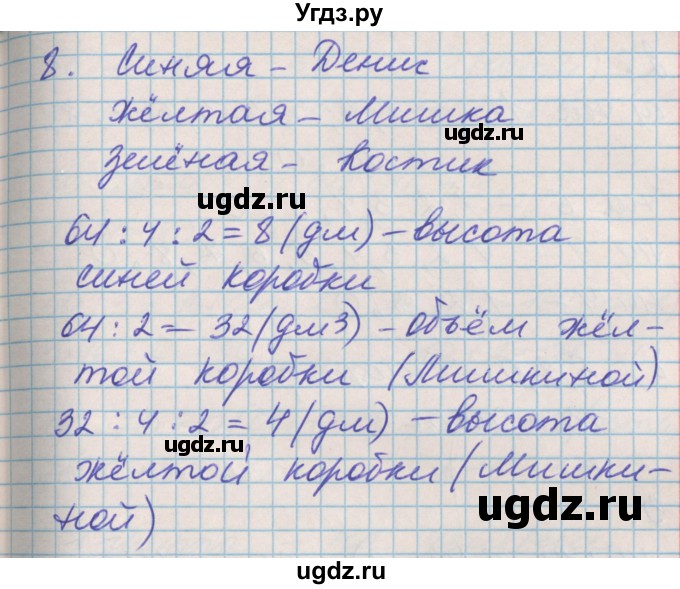 Угдз.ру
8. Синяя - Денис
Жёлтая - Мишка
ugdz.ru
Зелёная - Костик
ugdz.ru
64 : 4 : 2 = 8 (дм) - высота
ugdz.ru
синей коробки
64 : 2 = 32 (дм3) - объём жёл-
той коробки (Мишкиной)
32 : 4 : 2 = 4 (дм) - высота
ugdz.ru
жёлтой коробки (Мишки-
ной)
ugdz.ru
ugdz.ru